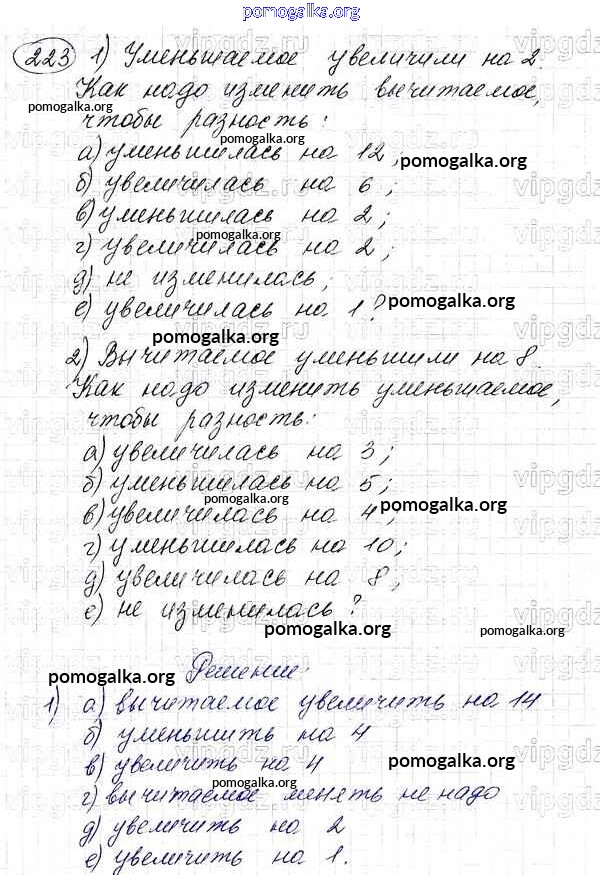 pomogalka.org
223 1) Уменьшаемое увеличили на 2.
Как надо изменить вычитаемое,
pomogalka.org
чтобы разность:
а) уменьшилась на 12;
pomogalka.org
б) увеличилась на 6;
в) уменьшилась на 2;
pomogalka.org
г) увеличилась на 2;
д) не изменилась;
е) увеличилась на 1?
pomogalka.org
pomogalka.org
2) Вычитаемое уменьшили на 8.
Как надо изменить уменьшаемое,
чтобы разность:
а) увеличилась на 3;
б) уменьшилась на 5;
pomogalka.org
в) увеличилась на 4;
pomogalka.org
г) уменьшилась на 10;
д) увеличилась на 8;
е) не изменилась?
pomogalka.org
pomogalka.org
Решение:
pomogalka.org
1) а) вычитаемое увеличить на 14
б) уменьшить на 4
в) увеличить на 4
pomogalka.org
pomogalka.org
г) вычитаемое менять не надо
д) увеличить на 2
е) увеличить на 1.
pomogalka.org